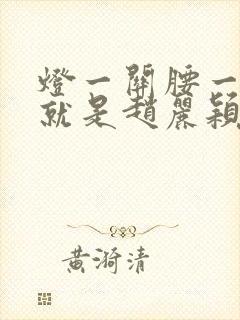 燈一關腰一
就是趙麗穎
黃漪清